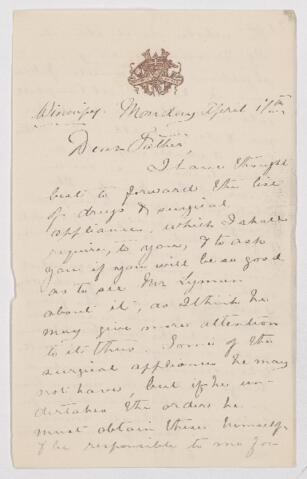 Winnipeg. Monday April 17th
Dear Father,
I have thought
best to forward the list
of drugs & surgical
appliances, which I shall
require, to you, & to ask
you if you will be so good
as to see Mr Lyman
about it, as I think he
may give more attention
to it thus. Some of the
surgical appliances he may
not have, but if he un-
dertakes the orders he
must obtain these himself
& be responsible to me for